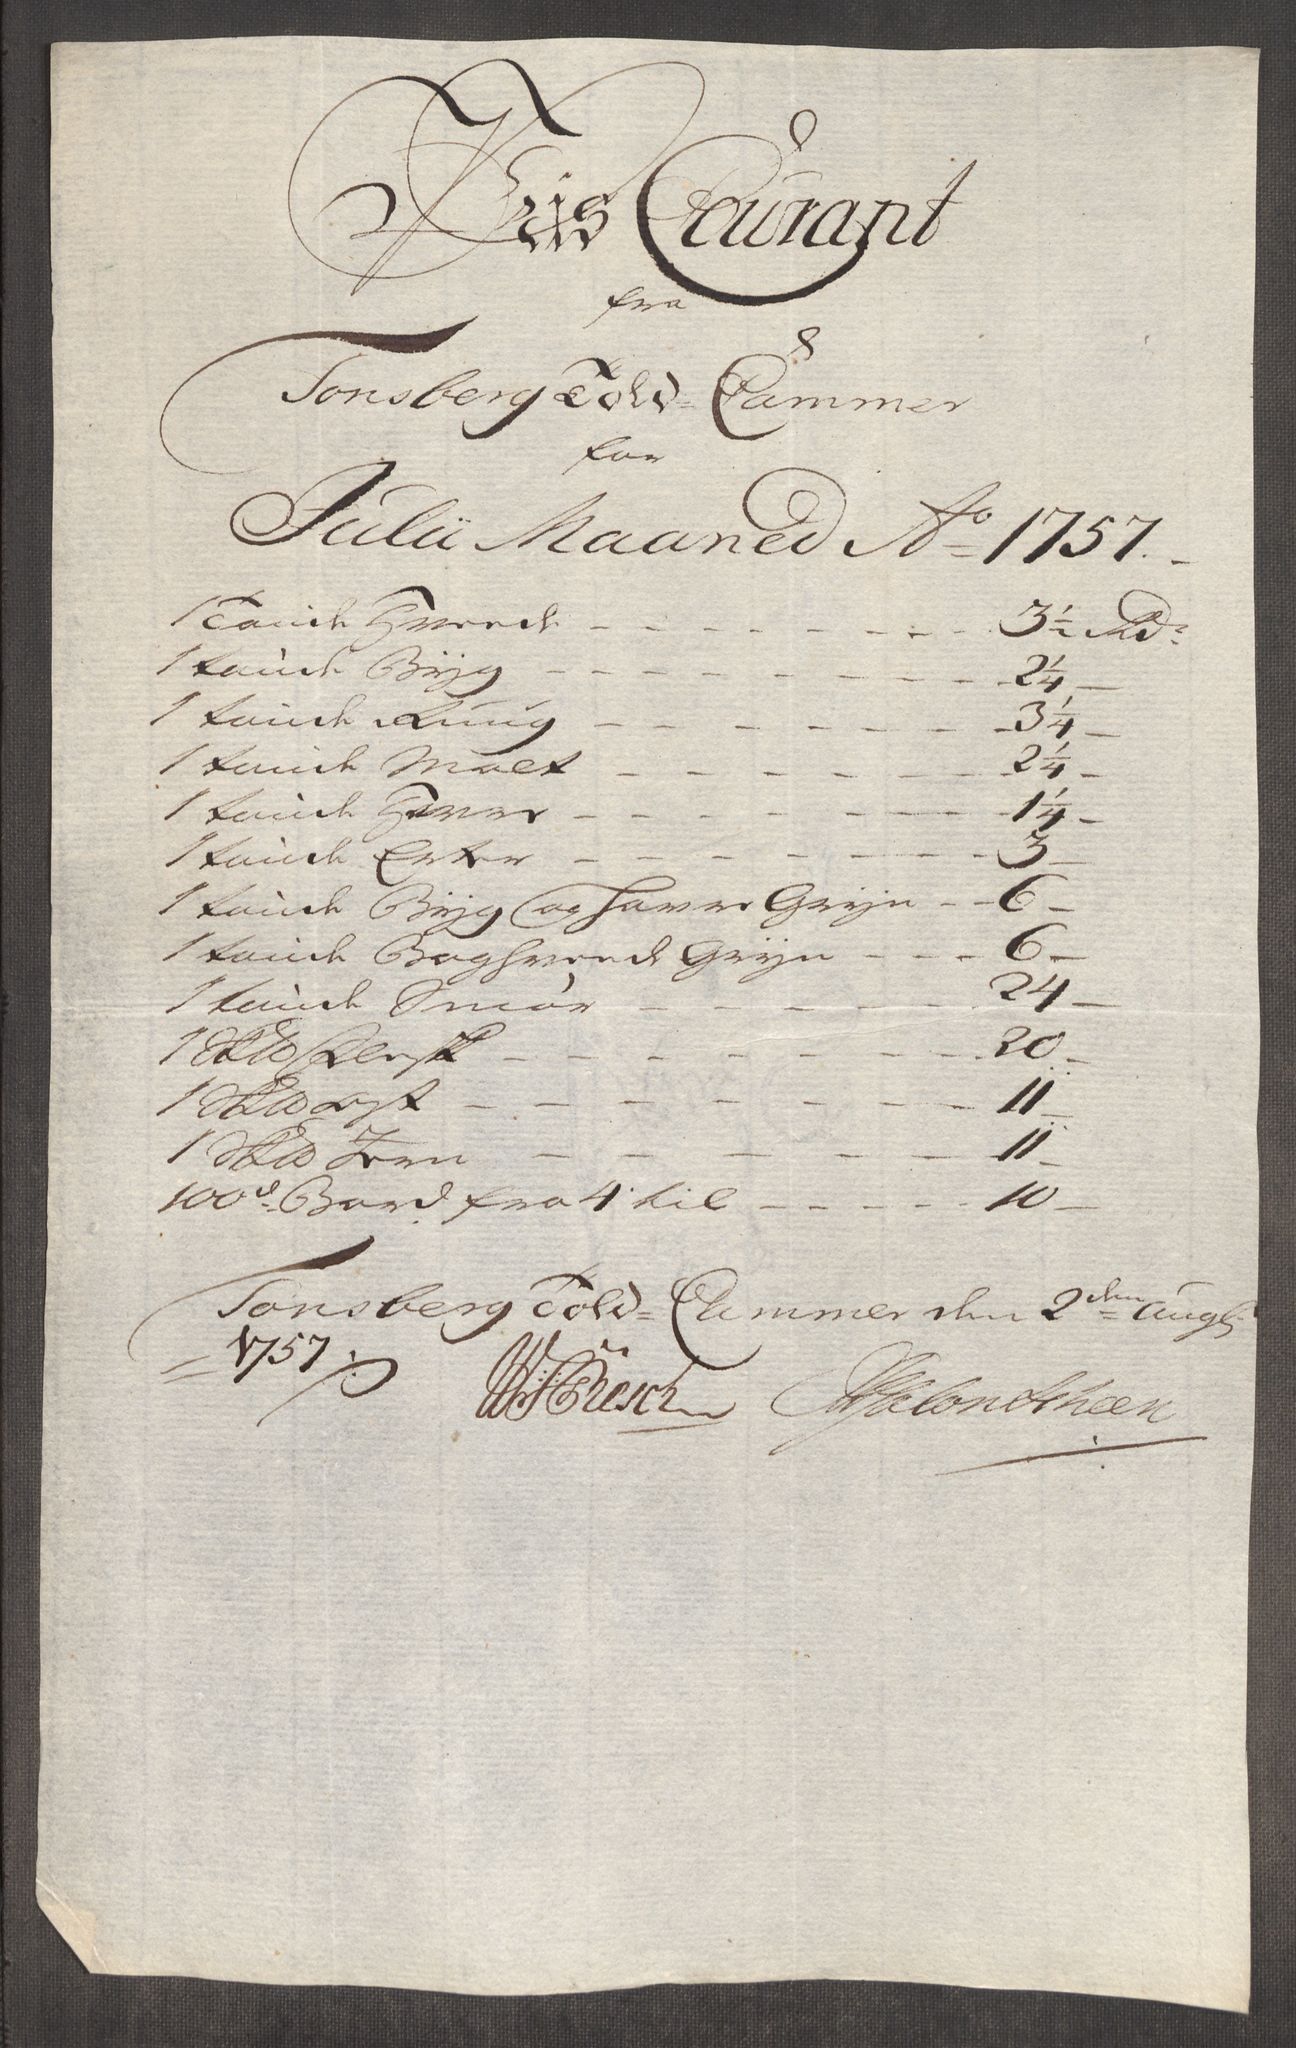 Pris Courant
fra
Tonsberg Told=Cammer
for
Julii Maaned Ao 1757.
1 Tønde Hvede 3½ Rd:
1 tønde Byg 2¼
1 tønde Rug 3¼
1 tønde Malt 2¼
1 tønde Havre 1¼
1 tønde Erter 3
1 tønde Byg og Havre Gryn 6
1 tønde Boghvede Gryn 6
1 tønde Smør 24
1 20
1 ost 11
1 Jern 11
100d Bord fra 4 til 10
Tonsberg Told=Cammer den 2den Aug:
1757